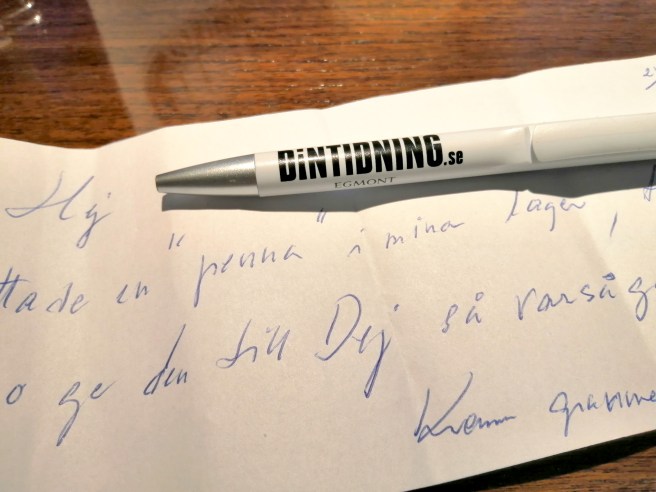 DiNTIDNING.se
EGMONT
Hej
ttade en "penna" i mina lager,
o ge den till Dej så varsåg
Kram granne